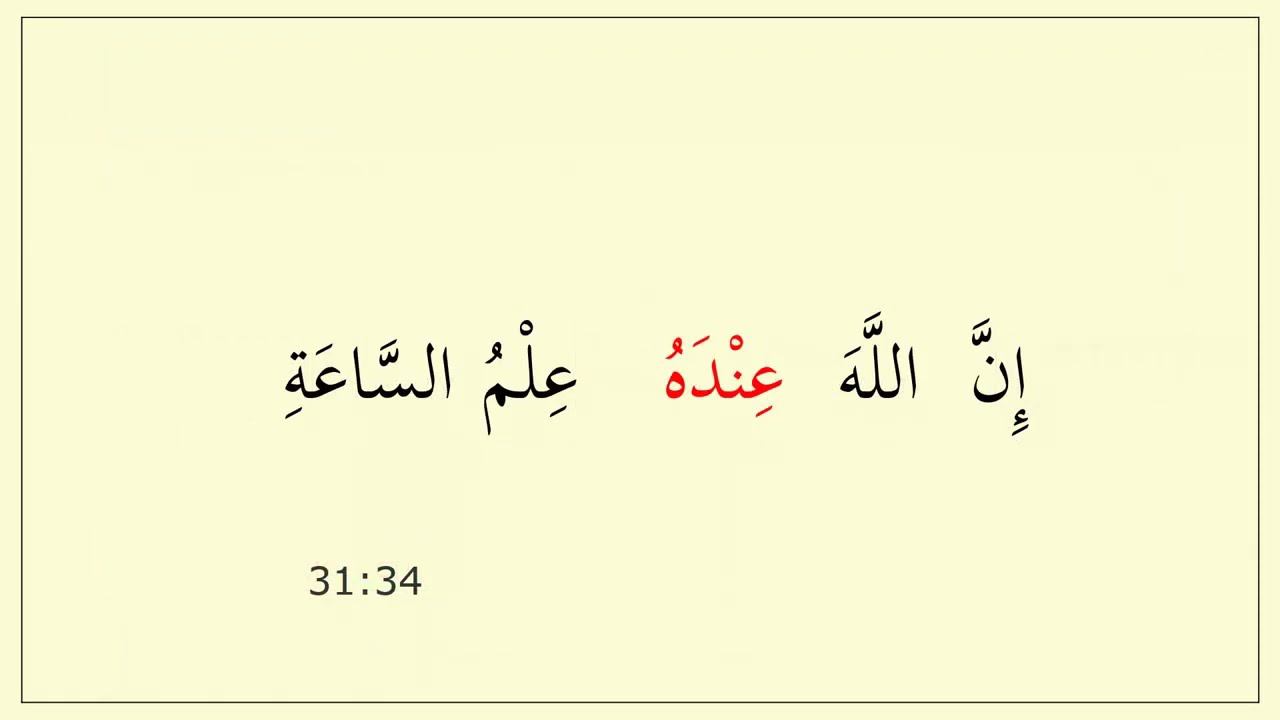 إِنَّ اللَّهَ عِنْدَهُ عِلْمُ السَّاعَةِ
31:34